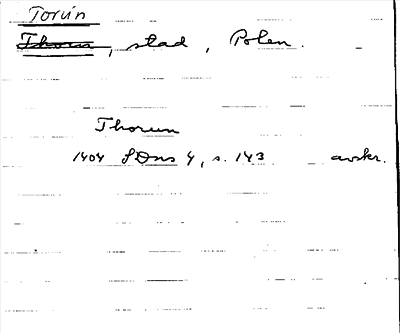 Torún
Thorn, stad, Polen.
Thorun
1404 SDns 4, s. 143 avskr.